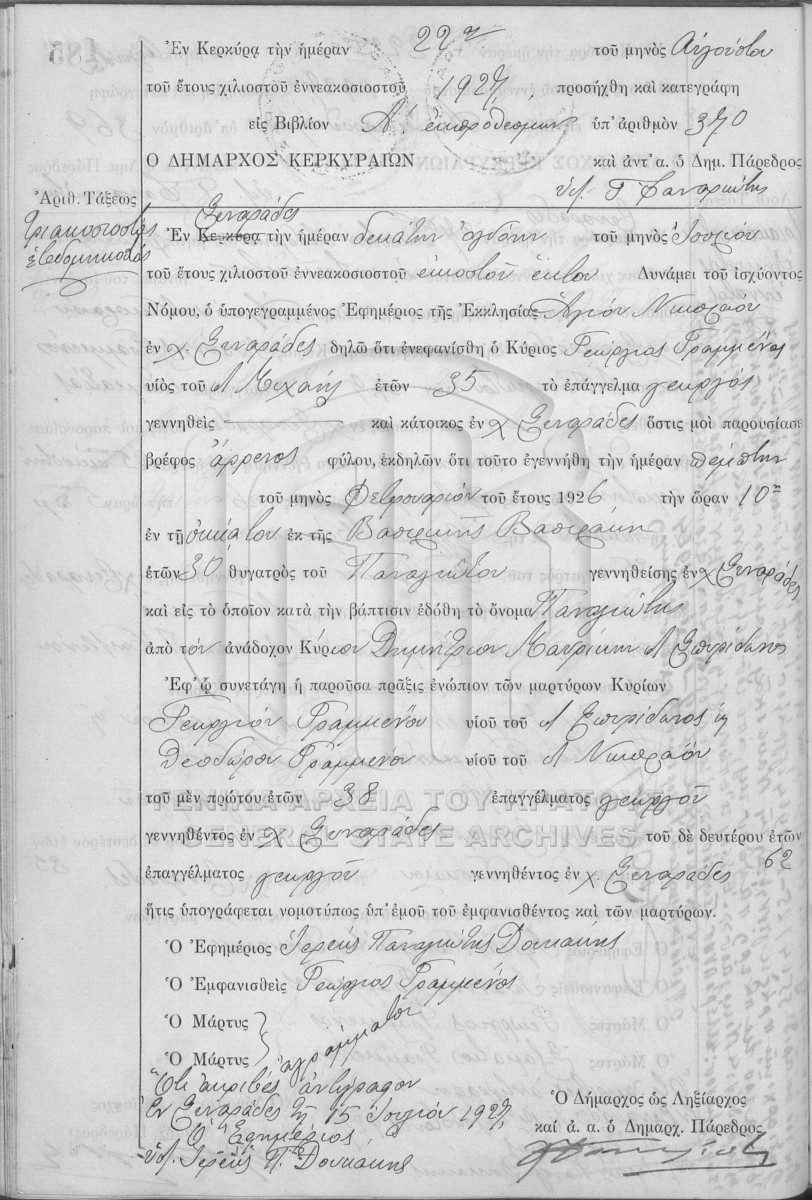 Ἐν Κερκύρᾳ τὴν ἡμέραν 22αν τοῦ μηνὸς Αὐγούστου
τοῦ ἔτους χιλιοστοῦ ἐννεακοσιοστοῦ 1927, προσήχθη καὶ κατεγράφη
εἰς Βιβλίον Α΄. ἐκπροθέσμων ὑπ' ἀριθμὸν 370
Ο ΔΗΜΑΡΧΟΣ ΚΕΡΚΥΡΑΙΩΝ καὶ ἀντ' α. ὁ Δημ. Πάρεδρος
Ἀριθ. Τάξεως
Τριακοσιοστὸς
ἑβδομηκοστὸς
Σιναράδες
Ἐν Κερκύρᾳ τὴν ἡμέραν δεκάτην ὀγδόην τοῦ μηνὸς Ἰουνίου
τοῦ ἔτους χιλιοστοῦ ἐννεακοσιοστοῦ εἰκοστοῦ ἕκτου Δυνάμει τοῦ ἰσχύοντος
Νόμου, ὁ ὑπογεγραμμένος Ἐφημέριος τῆς Ἐκκλησίας Ἁγίου Νικολάου
ἐν χ. Σιναράδες δηλῶ ὅτι ἐνεφανίσθη ὁ Κύριος Γεώργιος Γραμμένος
υἱὸς τοῦ Μιχαὴλ ἐτῶν 35 τὸ ἐπάγγελμα γεωργός
γεννηθεὶς καὶ κάτοικος ἐν χ Σιναράδες ὅστις μοὶ παρουσίασε
βρέφος ἄρρενος φύλου, ἐκδηλῶν ὅτι τοῦτο ἐγεννήθη τὴν ἡμέραν πέμπτην
τοῦ μηνὸς Φεβρουαρίου τοῦ ἔτους 1926 τὴν ὥραν 10ην
ἐν τῇ οἰκίᾳ του ἐκ τῆς Βασιλικῆς Βασιλάκη
ἐτῶν 30 θυγατρὸς τοῦ Παναγιώτου γεννηθείσης ἐν χ Σιναράδες
καὶ εἰς τὸ ὁποῖον κατὰ τὴν βάπτισιν ἐδόθη τὸ ὄνομα Παναγιώτης
ἀπὸ τόν ἀνάδοχον Κύριον Δημήτριον Μουρίκην Σπυρίδωνος
Ἐφ' ᾧ συνετάγη ἡ παροῦσα πρᾶξις ἐνώπιον τῶν μαρτύρων Κυρίων
Γεωργίου Γραμμένου υἱοῦ τοῦ Σπυρίδωνος
Θεοδώρου Γραμμένου υἱοῦ τοῦ Νικολάου
τοῦ μὲν πρώτου ἐτῶν 38 ἐπαγγέλματος γεωργοῦ
γεννηθέντος ἐν χ Σιναράδες τοῦ δὲ δευτέρου ἐτῶν 62
ἐπαγγέλματος γεωργοῦ γεννηθέντος ἐν χ. Σιναράδες
ἥτις ὑπογράφεται νομοτύπως ὑπ' ἐμοῦ τοῦ ἐμφανισθέντος καὶ τῶν μαρτύρων.
Ὁ Ἐφημέριος Ἱερεὺς Παναγιώτης Δουκάκης
Ὁ Ἐμφανισθεὶς Γεώργιος Γραμμένος
Ὁ Μάρτυς
Ὁ Μάρτυς ἀγράμματοι
Ὅτι ἀκριβὲς ἀντίγραφον
Ἐν Σιναράδες τῇ 15 Ἰουλίου 1927
Ὁ Ἐφημέριος
ὑπ. Ἱερεὺς Π. Δουκάκης
Ὁ Δήμαρχος ὡς Ληξίαρχος
καί ἀ. α. ὁ Δημαρχ. Πάρεδρος
ΓΕΝΙΚΑ ΑΡΧΕΙΑ ΤΟΥ ΚΡΑΤΟΥΣ
GENERAL STATE ARCHIVES